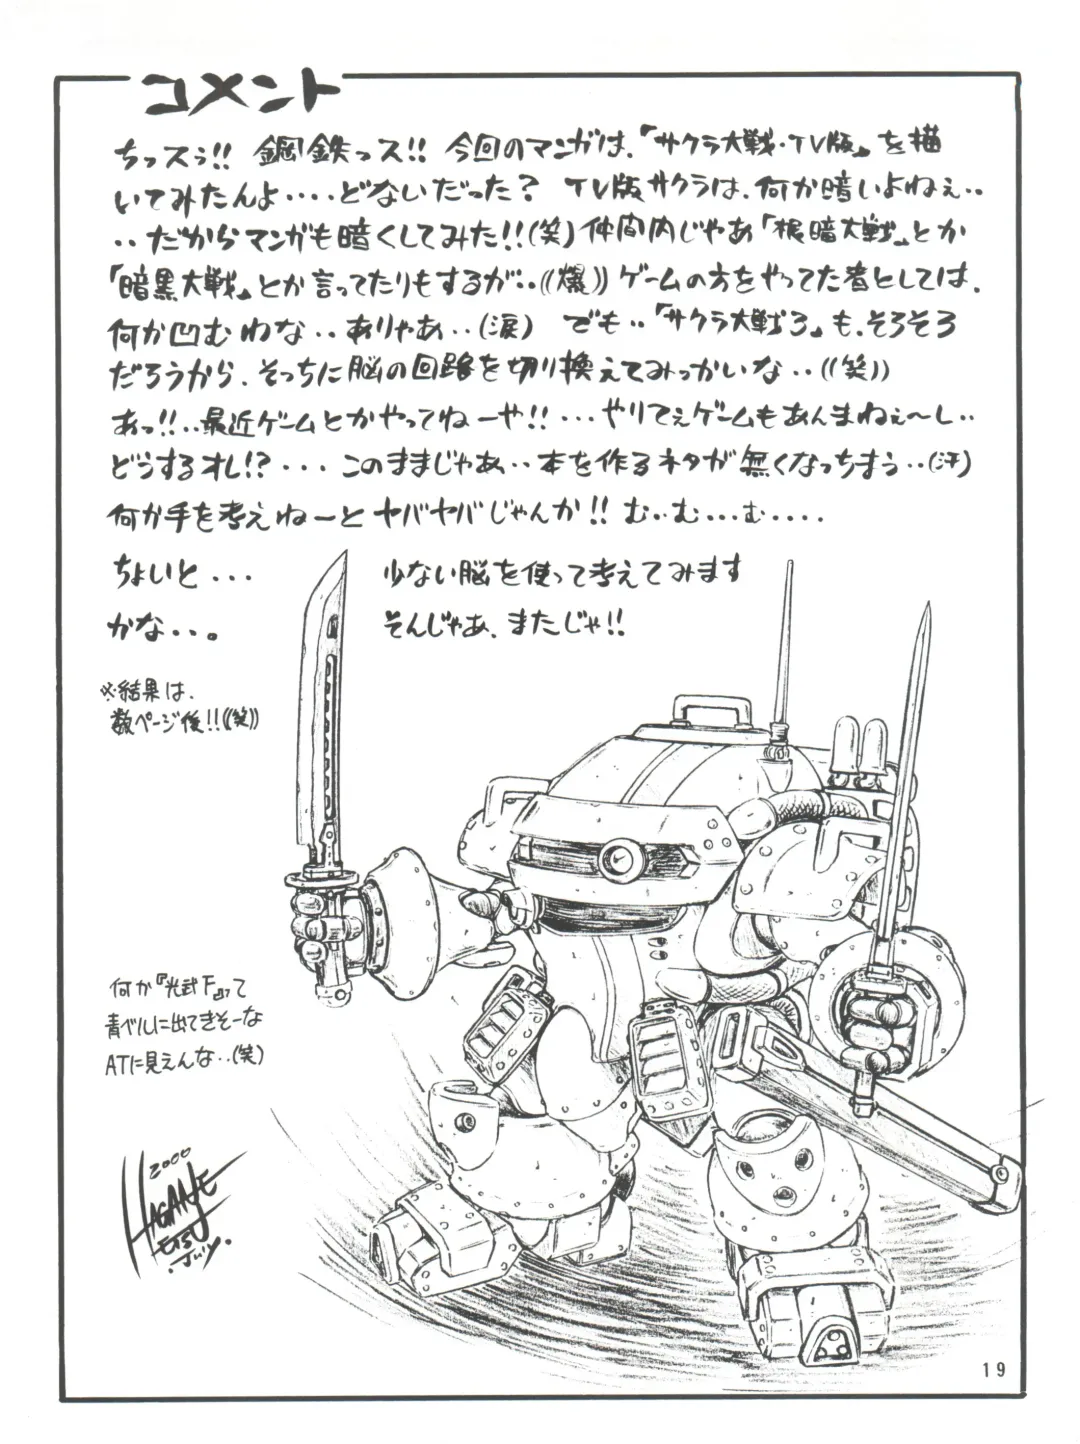 コメント
ちっスぅ!! 鋼鉄っス!! 今回のマンガは、「サクラ大戦・TV版」を描
いてみたんよ‥‥どないだった? TV版サクラは、何か暗いよねぇ‥
‥だからマンガも暗くしてみた!!(笑)仲間内じゃあ「根暗大戦」とか
「暗黒大戦」とか言ってたりもするが‥((爆)) ゲームの方をやってた者としては、
何か凹むわな‥ありゃあ‥(涙) でも‥「サクラ大戦3」も、そろそろ
だろうから、そっちに脳の回路を切り換えてみっかいな‥((笑))
あっ!!‥最近ゲームとかやってねーや!!・・・やりてぇゲームもあんまねぇ〜し‥
どうするオレ!?・・・このままじゃあ‥本を作るネタが無くなっちまう‥(汗)
何か手を考えねーとヤバヤバじゃんか!! む‥む…む‥‥
ちょいと・・・ 少ない脳を使って考えてみます
かな‥。 そんじゃあ、またじゃ!!
※結果は、
数ページ後!!((笑))
何か『光武F』って
青ベルに出てきそーな
ATに見えんな‥(笑)
2000
HAGANE
July.
19